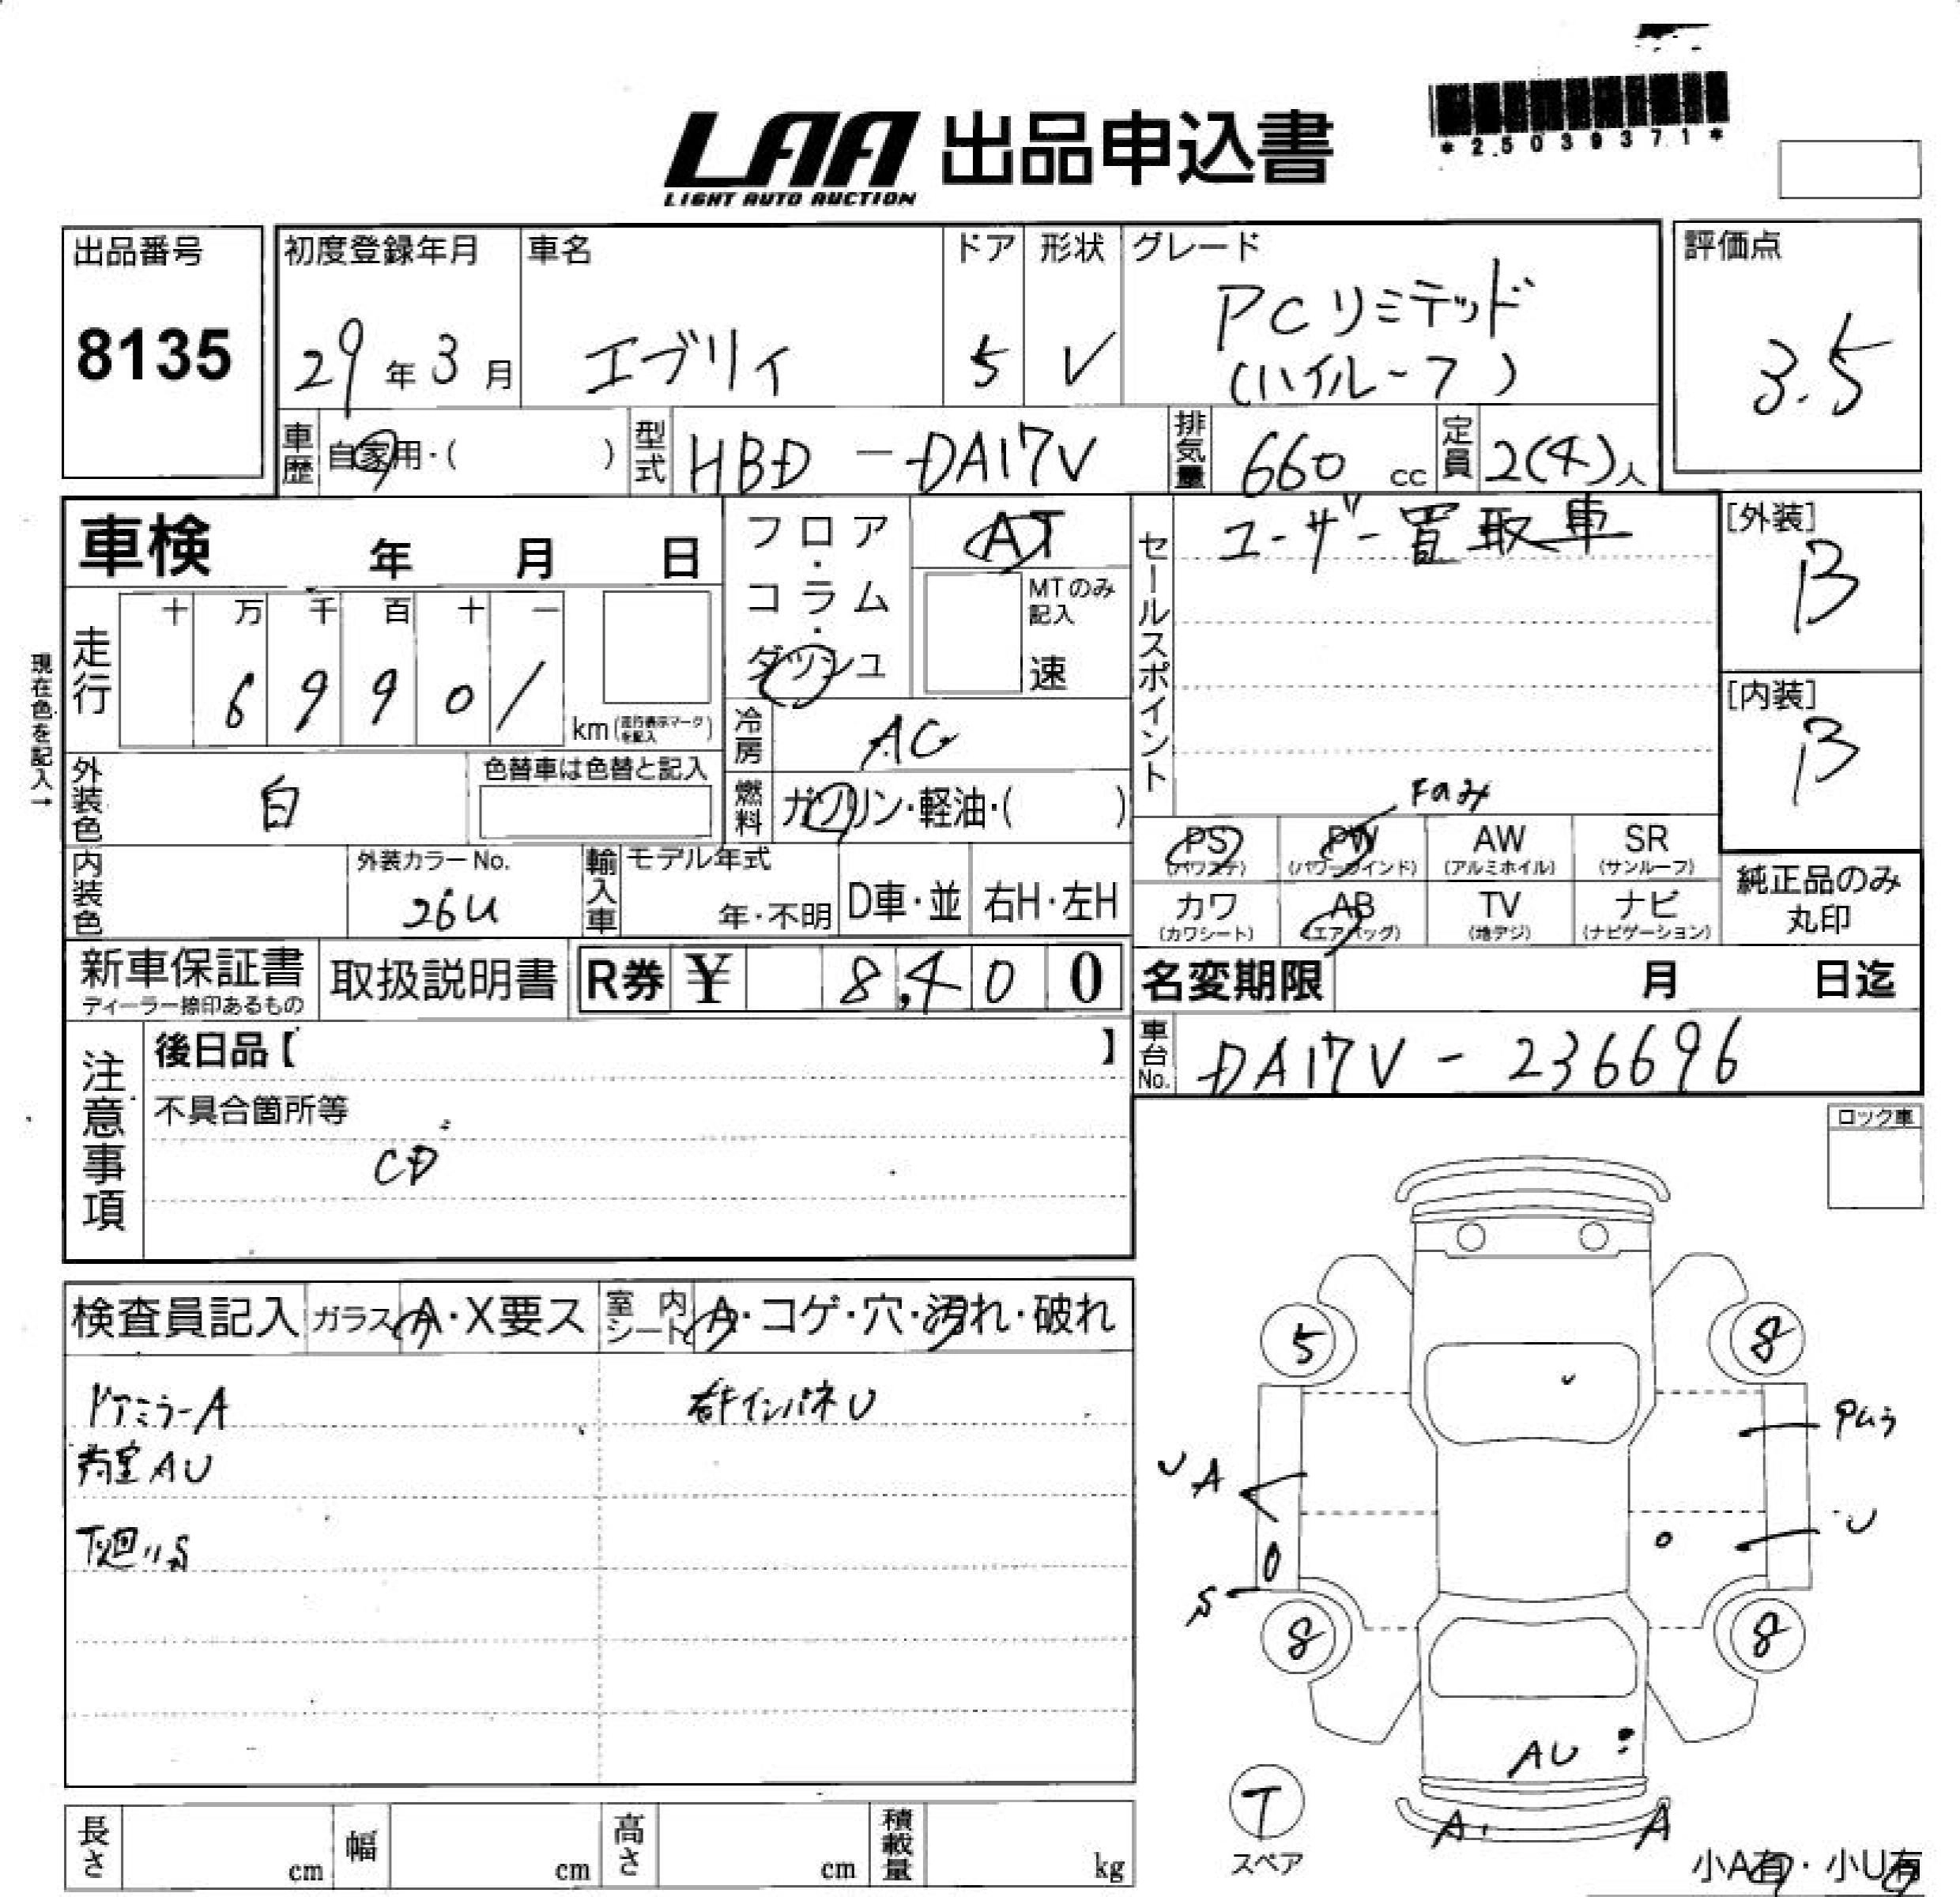 LAA 出品申込書
LIGHT AUTO AUCTION
*25039371*
出品番号
8135
初度登録年月
29年3月
車名
エブリィ
ドア
5
形状
V
グレード
PCリミテッド
(ハイルーフ)
評価点
3.5
車歴
自家用・( )
型式
HBD-DA17V
排気量
660 cc
定員
2(4)人
車検 年 月 日
走行
十 万 千 百 十 一
6 9 9 0 1
km(走行表示マークを記入)
現在色を記入→
フロア・コラム・ダッシュ
AT
MTのみ記入
速
冷房
AC
燃料
ガソリン・軽油・( )
セールスポイント
ユーザー買取車
[外装]
B
[内装]
B
外装色
白
色替車は色替と記入
内装色
外装カラーNo.
26U
輸入車
モデル年式
年・不明
D車・並
右H・左H
Faみ
PS
(パワステ)
PW
(パワーウインド)
AW
(アルミホイル)
SR
(サンルーフ)
カワ
(カワシート)
AB
(エアバッグ)
TV
(地デジ)
ナビ
(ナビゲーション)
純正品のみ
丸印
新車保証書
ディーラー捺印あるもの
取扱説明書
R券 ¥ 8,400
名変期限 月 日迄
車台No.
DA17V-236696
注意事項
後日品【 】
不具合箇所等
CD
ロック車
検査員記入
ガラス A・X要ス
室内シート A・コゲ・穴・汚れ・破れ
ドアミラーA
荷室AU
下廻りS
インパネU
5
8
U A
U
S
8
8
AU
A
A
T
スペア
小A有・小U有
長さ cm
幅 cm
高さ cm
積載量 kg